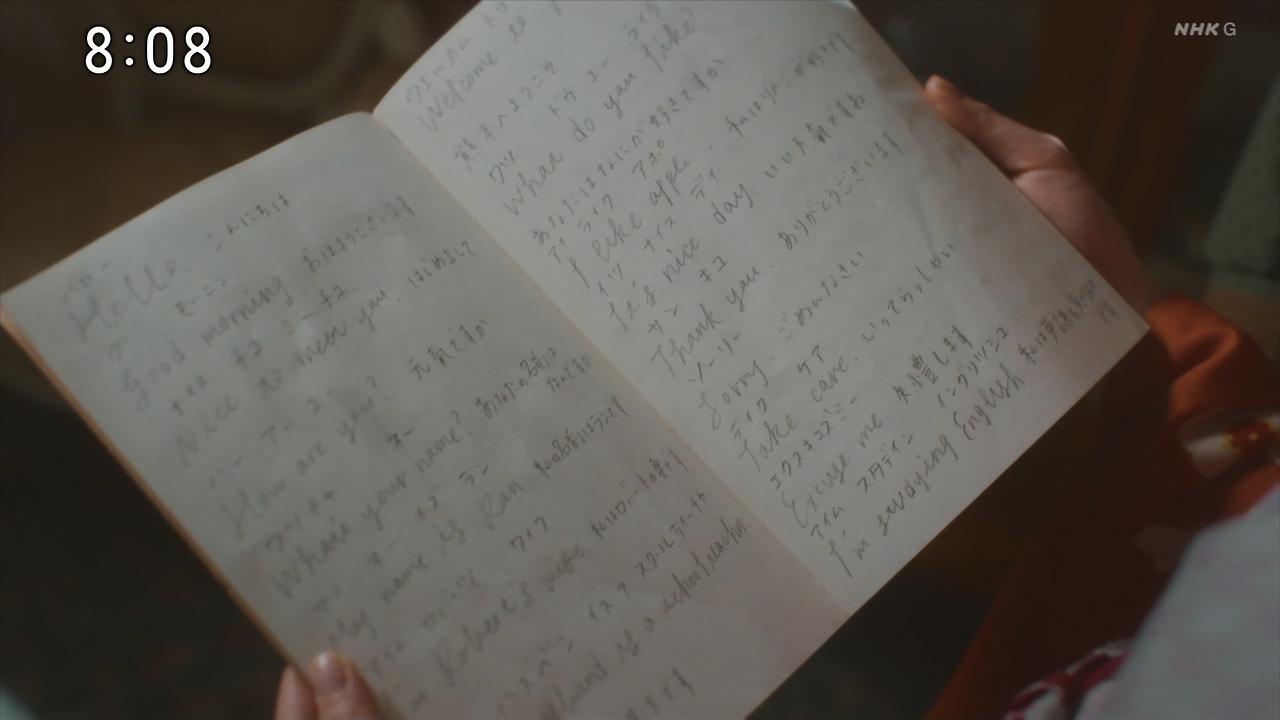 8:08
NHK G
ハロー
Hello. こんにちは
モーニン
good morning おはようございます
ナイス トゥ ミーチュ
Nice to meet you. はじめまして
ハー アー ユー
How are you? 元気ですか
ワッツ ネー
What's your name? あなたの名前は なんですか
マイ ネー イズ ラン
My name is Ran. 私の名前はランです
ワイフ
Robert's wife. 私はロバートの妻です
イズ ア スクール ティーチャ
husband is a school teacher.
ウェルカ トゥ
Welcome to
熊本へようこそ
ワッ ドゥ ユー ライク
What do you like?
あなたはなにが好きですか
アイ ライク アポ
I like apple. 私はりんごが好きです
イッツ ナイス デイ
It's nice day. いい天気ですね
サン キュ
Thank you. ありがとうございます
ソーリー
Sorry. ごめんなさい
テイク ケア
Take care. いってらっしゃい
エクスキューズミー
Excuse me. 失禮します
アイム スタディン イングリッシュ
I'm studying English 私は英語を勉強中です